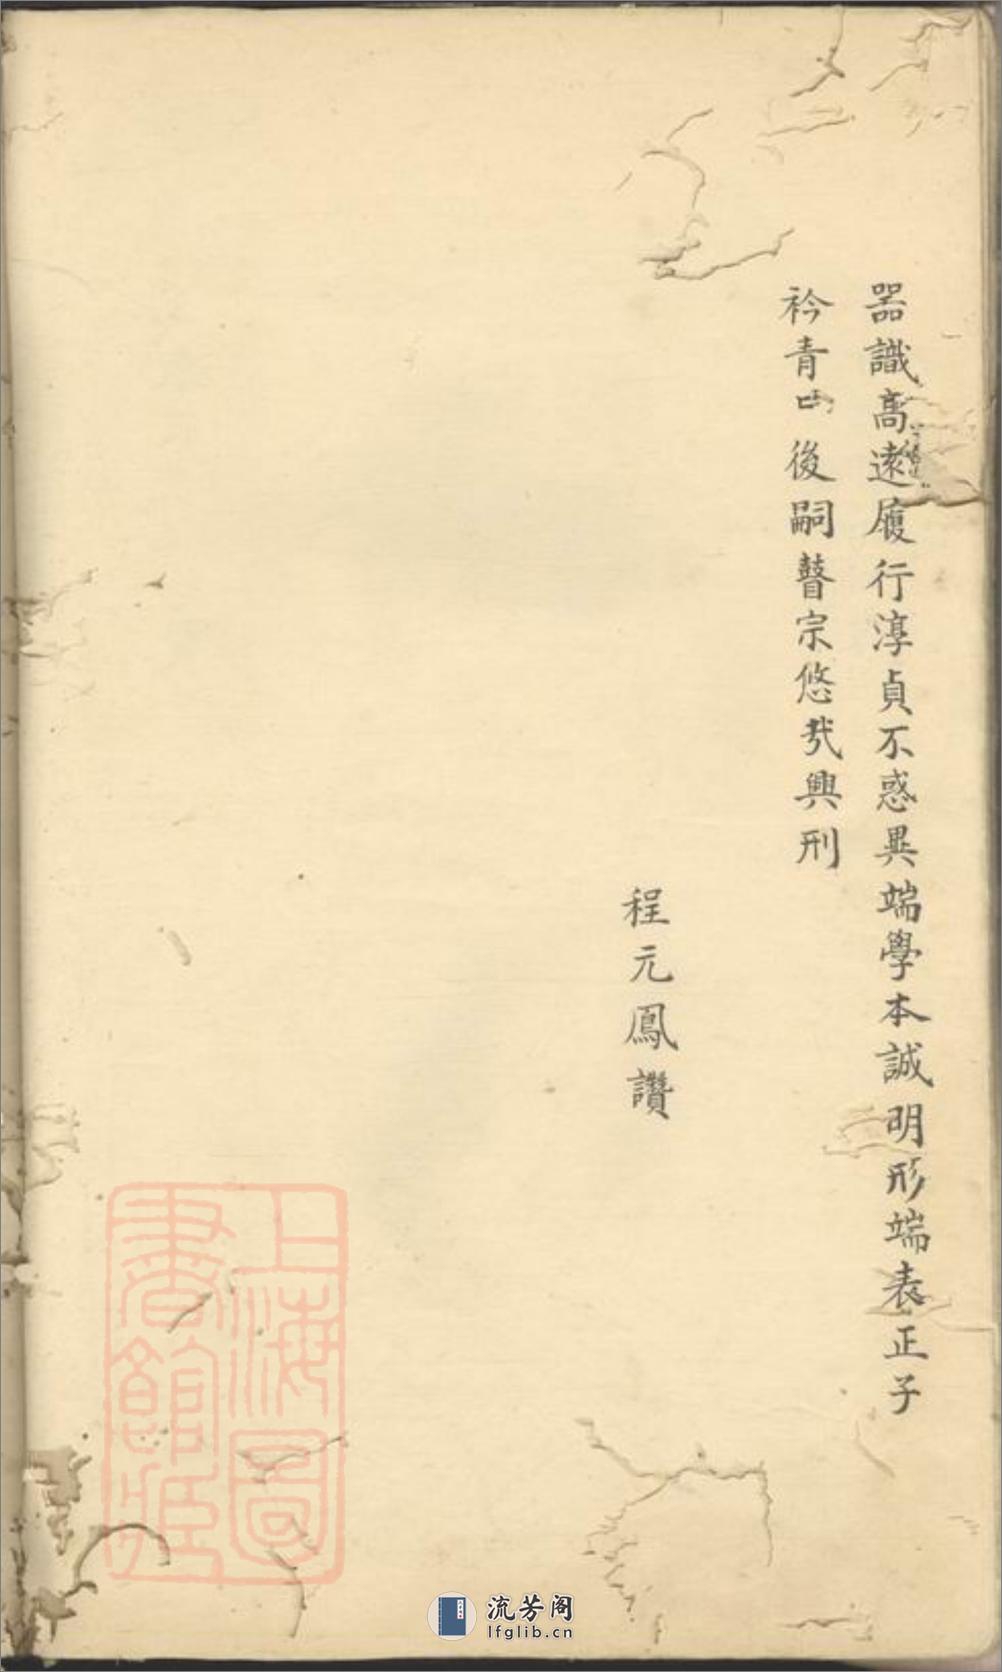 器識高遠履行淳貞不惑異端學本誠明形端表正子
衿青後嗣瞽宗悠㢤興刑
程元鳳讚
上海圖
書館藏
流芳阁
lfglib.cn